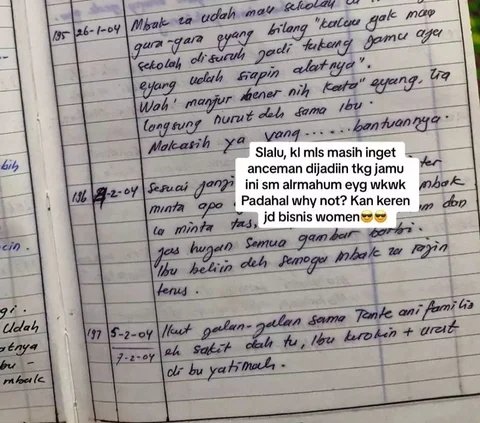 195 26-1-04 Mbak za udah mau sekolah
gara-gara eyang bilang "kalau gak mau
sekolah disuruh jadi tukang jamu aja
eyang udah siapin alatnya".
Wah' manjur bener nih kata" eyang.
langsung nurut deh sama Ibu.
Makasih ya yang......bantuannya.
Slalu, kl mls masih inget
anceman dijadiin tkg jamu
ini sm alrmahum eyg wkwk
Padahal why not? Kan keren
jd bisnis women😎😎
196 7-2-04 Sesuai janji
minta apa mbak
ia minta tas, dan
jas hujan semua gambar barbi.
Ibu beliin deh semoga mbak za rajin
terus.
197 5-2-04 Ikut jalan-jalan sama Tante ani familia
7-2-04 eh sakit dah tu, Ibu kerokin + urut
di bu yatimah.
bih
cin.
gi.
Udah
atnya
bu -
mbak